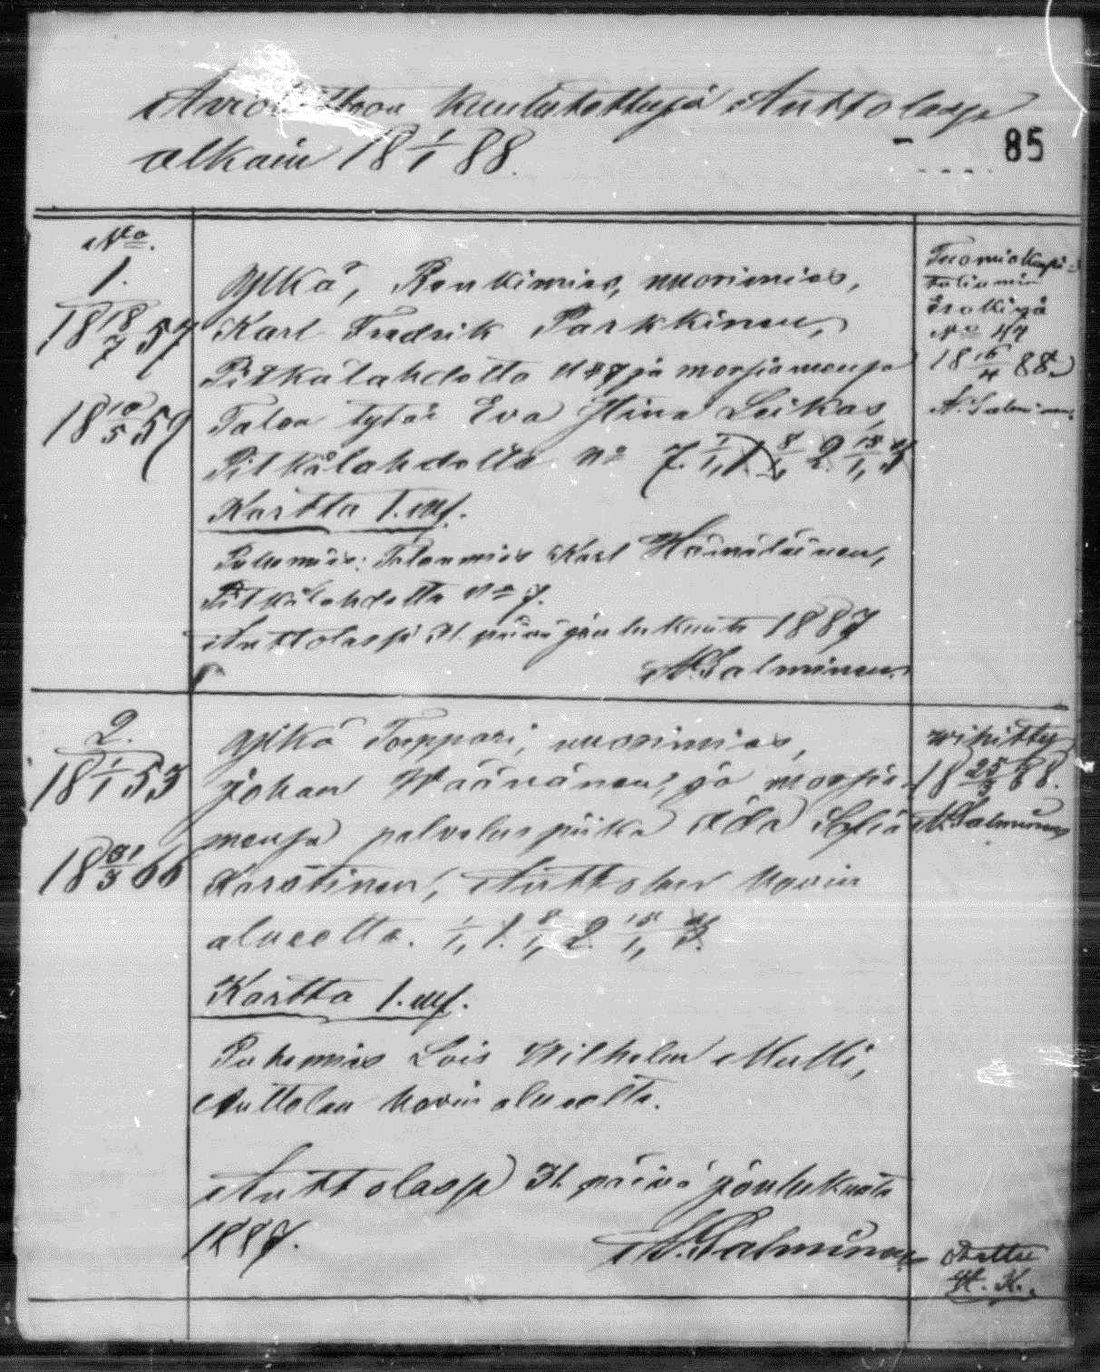 Avioliittoon kuulutettuja Anttolassa
alkain 18 1/1 88.
85
No.
1.
18 18/7 57
18 10/5 59
Ylkä, Renkimies, nuorimies,
Karl Fredrik Parkkinen,
Pitkälahdelta No 7 ja morsiamensa
Talon tytär Eva Stina Leikas,
Pitkälahdelta No 7. 1/1, 1. 8/1, 2. 15/1, 3
Kartta 1. mk.
Puhemies: Talonmies Karl Häinäläinen,
Pitkälahdelta No 7.
Anttolassa 31 päivä joulukuuta 1887
A. Salminen.
Tuomiokapi-
tuliumin
No 47
18 16/4 88.
A. Salminen.
2.
18 1/1 53
18 31/3 66
Ylkä Torppari, nuorimies,
Johan Wäänänen, ja morsia-
mensa palveluspiika Ida Sofia
Korstinen, Anttolan hovin
alueelta. 1/1, 1. 8/1, 2. 15/1, 3.
Kartta 1. mk.
Puhemies Lois Wilhelm Mulli,
Anttolan hovin alueelta.
Anttolassa 31 päivä joulukuuta
1887.
A. Salminen
wihitty
18 25/3 88.
A. Salminen
H. K.